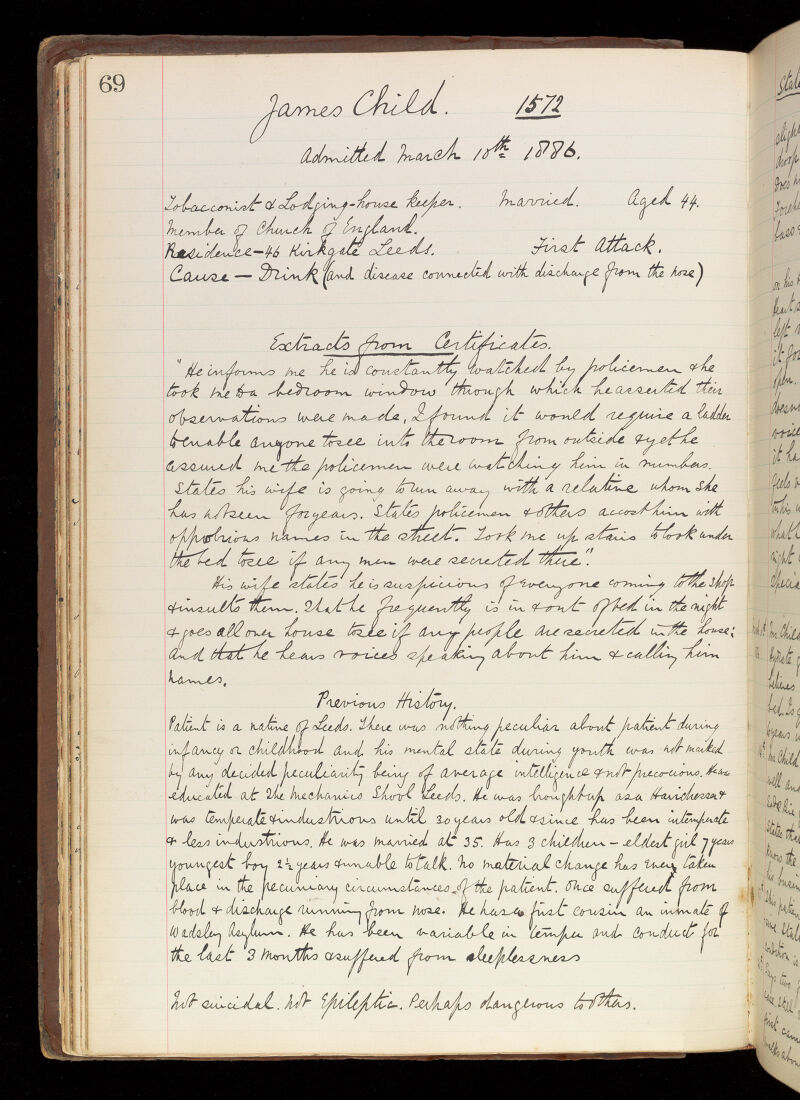 69
James Child. 1572
Admitted March 10th 1886.
Tobacconist & Lodging-house keeper. Married. Aged 44.
Member of Church of England.
Residence - 46 Kirkgate Leeds. First Attack.
Cause - Drink (and disease connected with discharge from the nose)
Extracts from Certificates.
"He informs me he is constantly watched by policemen & he
took me to a bedroom window through which he asserted their
observations were made, I found it would require a ladder
to enable anyone to see into the room from outside & yet he
assured me the policemen were watching him in numbers.
States his wife is going to run away with a relative whom she
has not seen for years. States policemen & others accost him with
opprobrious names in the street. Took me up stairs to look under
the bed to see if any men were secreted there".
His wife states he is suspicious of everyone coming to the shop
& insults them. That he frequently is in & out of bed in the night
& goes all over house to see if any people are secreted in the house:
and that he hears voices speaking about him & calling him
names.
Previous History.
Patient is a native of Leeds. There was nothing peculiar about patient during
infancy or childhood and his mental state during youth was not marked
by any decided peculiarity being of average intelligence & not precocious. He was
educated at the Mechanics Shool Leeds. He was brought up as a Hairdresser &
was temperate & industrious until 30 years old & since has been intemperate
& less industrious. He was married at 35. Has 3 children - eldest girl 7 years
youngest boy 2½ years & unable to talk. No material change has ever taken
place in the pecuniary circumstances of the patient. Once suffered from
blood & discharge running from nose. He has a first cousin an inmate of
Wadsley Asylum. He has been variable in temper and conduct for
the last 3 months & suffered from sleeplessness
Not suicidal. Not Epileptic. Perhaps dangerous to others.